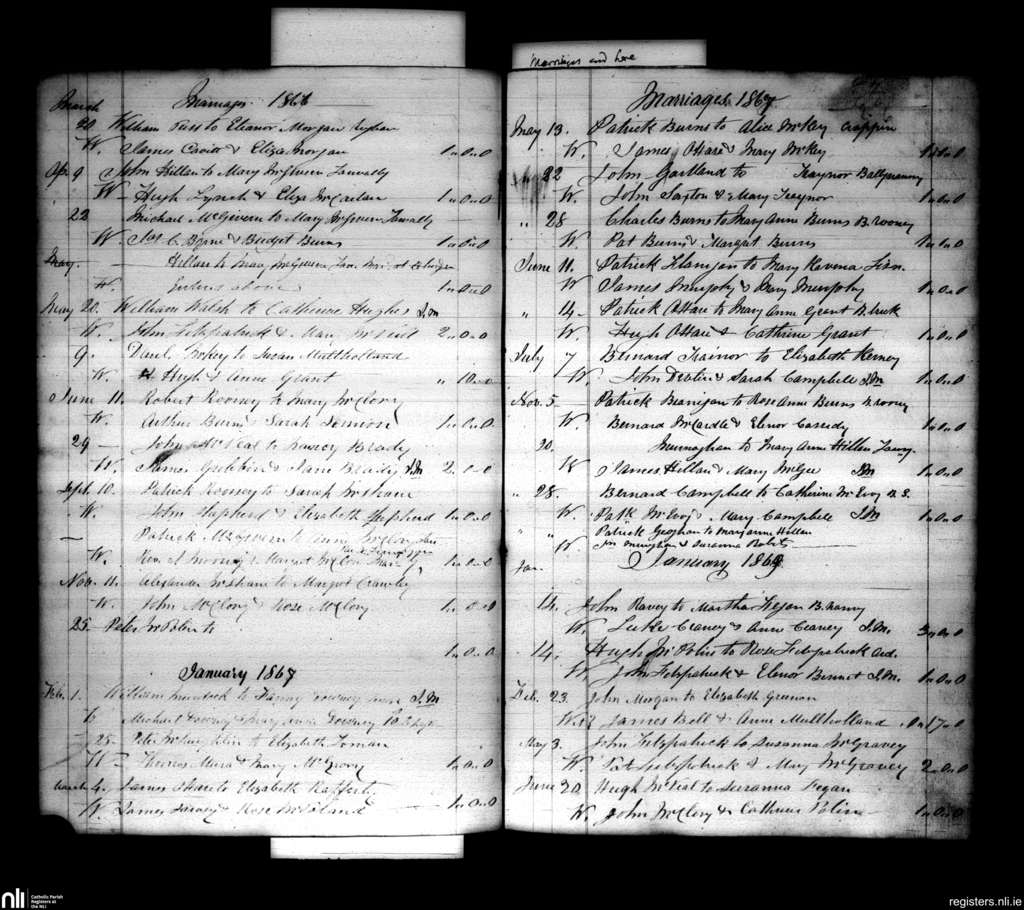 Marriages and here
March Marriages 1866
20 William Russ to Eleanor Morgan
W. James Cavitt & Eliza Morgan 1 " 0 " 0
Apr. 9 John Hillen to Mary McGiveen
W Hugh Lynch & Eliza McCartan 1 " 0 " 0
22 Michael McGivern to Mary McGiveen
W. Jas C. Byrne & Bridget Burns 1 " 0 " 0
May. Hillen to Mary McGiveen
W. above 1 " 0 " 0
May 20. William Walsh to Catherine Hughes J.M
W. John Fitzpatrick & Mary McNeil 2 " 0 " 0
9. Danl. McKey to Susan Mullholland
W. Hugh & Anne Grant " 10 " 0
June 11. Robert Rooney to Mary McClory
W. Arthur Burns & Sarah Lennon 1 " 0 " 0
29 John McNeal to Nancy Brady
W. James Gribbin & Jane Brady J.M 2 " 0 " 0
Sept. 10. Patrick Rooney to Sarah McShane
W. John Shepherd & Elizabeth Shepherd 1 " 0 " 0
Patrick McGivern to Anne McClory
W. Rooney & Margret McClory 1 " 0 " 0
Nov. 11. Alexander McShane to Margret Crawley
W. John McClory & Rose McClory 1 " 0 " 0
25. Peter McPolin to
1 " 0 " 0
January 1867
Feb. 1. William to Downey J.M
W. Michael Downey & Mary Anne Downey
25. Peter McLaughlin to Elizabeth Toman
W Thomas Mura & Mary McGrory 1 " 0 " 0
March 4. James OHare to Elizabeth Rafferty
W. James & Rose McPoland 1 " 0 " 0
Marriages 1867
May 13. Patrick Burns to Alice McKey
W. James OHare & Mary McKey 1 " 0 " 0
22 John Gartland to Traynor
W. John Saxton & Mary Traynor 1 " 0 " 0
" 28 Charles Burns to Mary Anne Burns B.rooney
W. Pat Burns & Margret Burns 1 " 0 " 0
June 11. Patrick Flanigan to Mary Kavena
W. James Murphy & Mary Murphy 1 " 0 " 0
" 14. Patrick OHare to Mary Anne Grant
W. Hugh OHare & Cathrine Grant 1 " 0 " 0
July 7 Bernard Trainor to Elizabeth Kerney
W. John Devlin & Sarah Campbell J.M 1 " 0 " 0
Nov. 5 Patrick Branigan to Rose Anne Burns B.rooney
W. Bernard McCardle & Elenor Cassidy 1 " 0 " 0
20. to Mary Ann Hillen
W James Hillan & Mary McGee J.M 1 " 0 " 0
" 28. Bernard Campbell to Catherine McEvoy B.S.
W. Patk McEvoy & Mary Campbell J.M 1 " 0 " 0
" " Patrick Geoghan to Maryanne Hillen
W & Susanna Roberts
Jan. January 1868
14. John Ravey to Martha Fegan
W. Luke Craney & Ann Craney J.M. 3 " 0 " 0
14. Hugh McPolin to Rose Fitzpatrick
W. John Fitzpatrick & Elenor Bennet J.M. 1 " 0 " 0
Feb. 23. John Morgan to Elizabeth Greenon
W. James Bell & Anne Mullholland 0 " 17 " 0
May 3. John Fitzpatrick to Susanna McGravey
W. Pat Fitzpatrick & Mary McGravey 2 " 0 " 0
June 20. Hugh McNeil to Susanna Fegan
W. John McClory & Catherine Polin 1 " 0 " 0
nli
Catholic Parish
Registers at
the NLI
registers.nli.ie